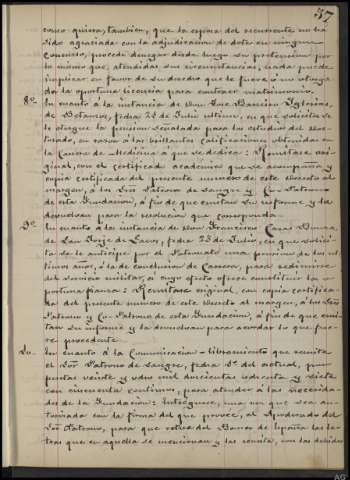 37
como quiera, tambien, que la esposa del recurrente no ha
sido agraciada con la adjudicacion de dote en ningun
concurso, procede denegar desde luego su pretension por
lo mismo que, atendidas sus circunstancias, nada puede
implicar en favor de su derecho que le fuera ó no otorga
da la oportuna licencia para contraer matrimonio.
8º En cuanto á la instancia de Don José Iglesias,
de Betanzos, fecha 28 de Julio ultimo, en que solicita se
le otorgue la pension señalada para los estudios del Doc-
torado, en razon á las brillantes calificaciones obtenidas en
la Carrera de Medicina á que se dedica: Remitase ori-
ginal, con el certificado academico que se acompaña y
copia certificada del presente numero de este Decreto al
margen, á los Sres Patrono de Sangre y Co-Patrono
de esta Fundacion, á fin de que emitan su informe y la
devuelvan para la resolucion que corresponda.
9º En cuanto á la instancia de Don Francisco Casas
de San Jorje de Sacos, fecha 23 de Julio, en que solici-
ta se le anticipe por el Patronato una pension de los ul-
timos años, á la conclusion de Carrera, para redimirse
del servicio militar, á cuyo efecto ofrece constituir la o-
portuna fianza: Remitase original, con copia certifica-
da del presente numero de este Decreto al margen, á los Sres
Patrono y Co-Patrono de esta Fundacion, á fin de que emi-
tan su informe y la devuelvan para acordar lo que fue-
re procedente.
10. En cuanto á la Comunicacion-libramiento que remite
el Sor Patrono de Sangre, fecha 1º del actual, por
pesetas veinte y ocho mil doscientas ochenta y siete
con cincuenta centimos, para atender á las necesida-
des de la Fundacion: Intervengase, una vez que sea au-
torizada con la firma del que provee, al Apoderado del
Sor Patrono, para que retire del Banco de España las le-
tras que en aquella se mencionan y las remita, con las debidas